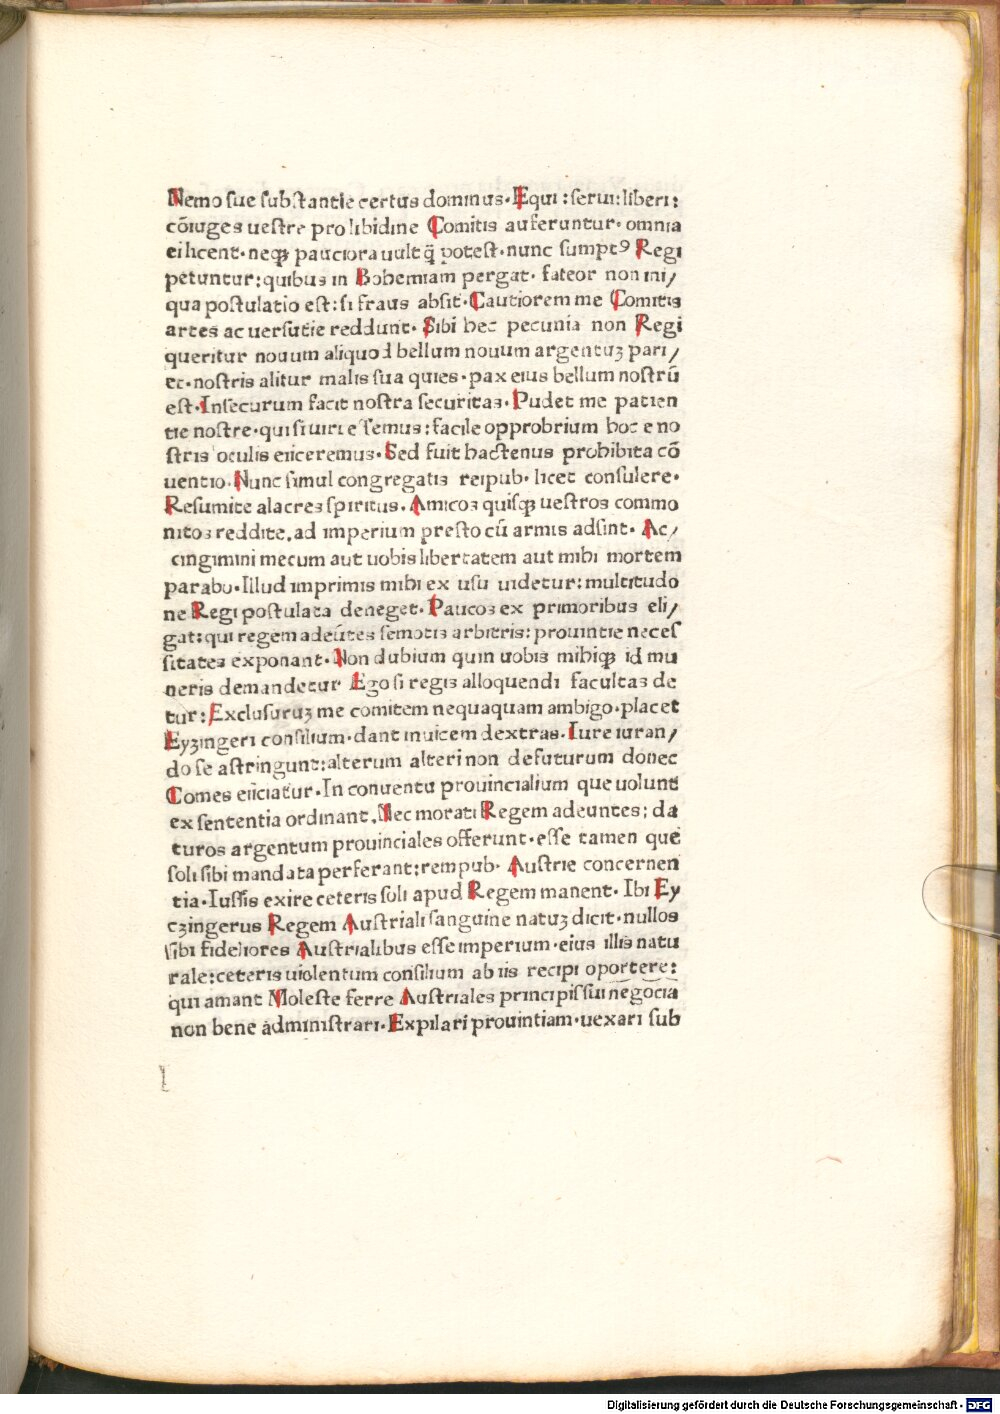 Nemo sue substantie certus dominus. Equi: serui: liberi:
cōiuges uestre pro libidine Comitis auferuntur. omnia
ei licent. neqꝫ pauciora uult q̄ potest. nunc sumptꝰ Regi
petuntur: quibus in Bohemiam pergat. fateor non ini/
qua postulatio est: si fraus absit. Cautiorem me Comitis
artes ac uersutie reddunt. Sibi hec pecunia non Regi
queritur nouum aliquod bellum nouum argentuꝫ pari/
et. nostris alitur malis sua quies. pax eius bellum nostrū
est. Insecurum facit nostra securitas. Pudet me patien
tie nostre. qui si uiri essemus: facile opprobrium hoc e no
stris oculis eiiceremus. Sed fuit hactenus prohibita cō
uentio. Nunc simul congregatis reipub. licet consulere.
Resumite alacres spiritus. Amicos quisqꝫ uestros commo
nitos reddite. ad imperium presto cū armis adsint. Ac/
cingimini mecum aut uobis libertatem aut mihi mortem
parabo. Illud imprimis mihi ex usu uidetur: multitudo
ne Regi postulata deneget. Paucos ex primoribus eli/
gat: qui regem adeūtes semotis arbitris: prouintie neces
sitates exponant. Non dubium quin uobis mihiqꝫ id mu
neris demandetur Ego si regis alloquendi facultas de
tur: Exclusuruꝫ me comitem nequaquam ambigo. placet
Eyzingeri consilium. dant inuicem dextras. Iure iuran/
do se astringunt: alterum alteri non defuturum donec
Comes eiiciatur. In conuentu prouincialium que uolunt
ex sententia ordinant. Nec morati Regem adeuntes: da
turos argentum prouinciales offerunt. esse tamen que
soli sibi mandata perferant: rempub. Austrie concernen
tia. Iussis exire ceteris soli apud Regem manent. Ibi Ey
czingerus Regem Australi sanguine natuꝫ dicit. nullos
sibi fideliores Australibus esse imperium. eius illis natu
rale: ceteris uiolentum consilium ab iis recipi oportere:
qui amant Moleste ferre Australes principis sui negocia
non bene administrari. Expilari prouintiam. uexari sub
Digitalisierung gefördert durch die Deutsche Forschungsgemeinschaft - DFG